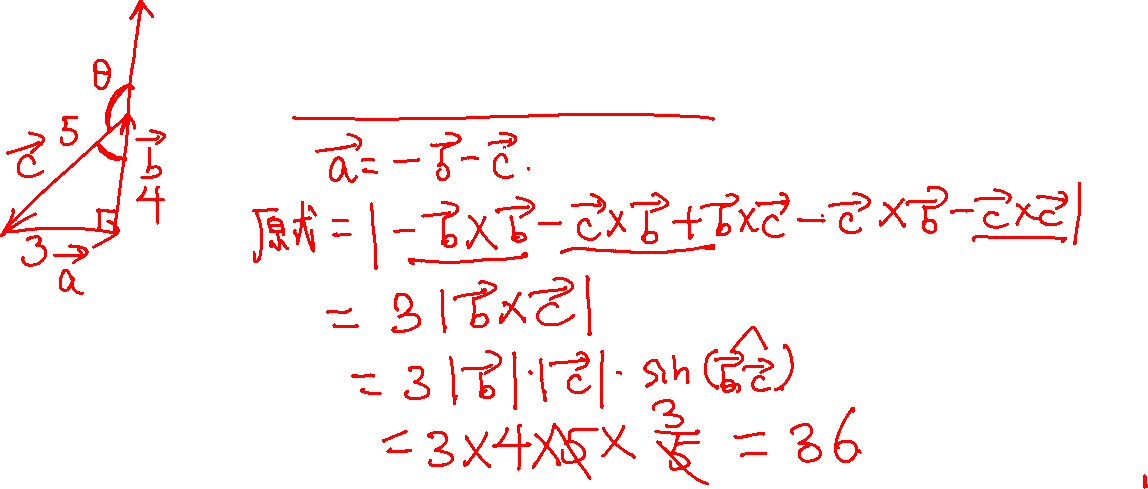 θ
5
c⃗
b⃗
4
3
a⃗
a⃗ = -b⃗ - c⃗.
原式 = |-b⃗×b⃗ - c⃗×b⃗ + b⃗×c⃗ - c⃗×b⃗ - c⃗×c⃗|
= 3|b⃗×c⃗|
= 3|b⃗|·|c⃗|·sin(b⃗,c⃗)
= 3×4×5×3/5 = 36